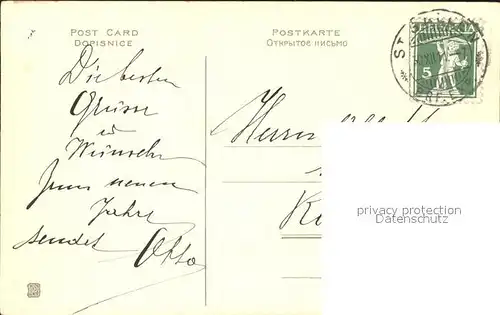 POST CARD
DOPISNICE
POSTKARTE
ОТКРЫТОЕ ПИСЬМО
HELVETIA
5
ST.
Die besten
Grüsse
u
Wünsche
zum neuen
Jahre
sendet Otto
Herrn
privacy protection
Datenschutz